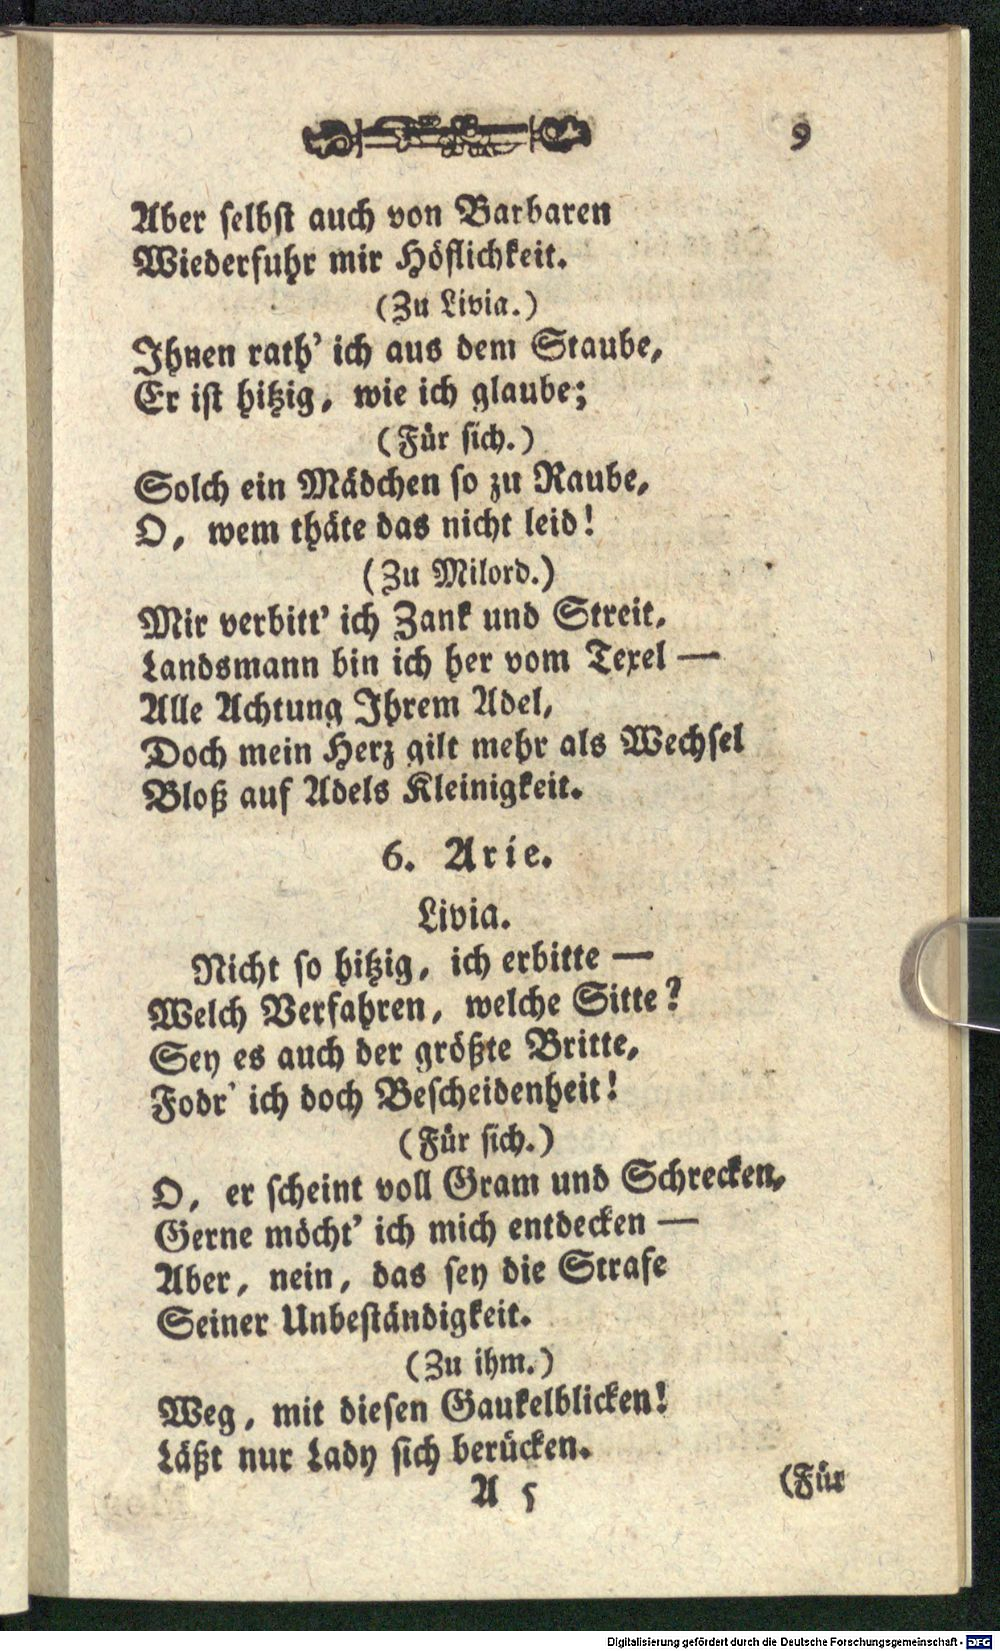 9
Aber selbst auch von Barbaren
Wiederfuhr mir Höflichkeit.
(Zu Livia.)
Ihnen rath' ich aus dem Staube,
Er ist hitzig, wie ich glaube;
(Für sich.)
Solch ein Mädchen so zu Raube,
O, wem thäte das nicht leid!
(Zu Milord.)
Mir verbitt' ich Zank und Streit,
Landsmann bin ich her vom Texel —
Alle Achtung Ihrem Adel,
Doch mein Herz gilt mehr als Wechsel
Bloß auf Adels Kleinigkeit.
6. Arie.
Livia.
Nicht so hitzig, ich erbitte —
Welch Verfahren, welche Sitte?
Sey es auch der größte Britte,
Fodr' ich doch Bescheidenheit!
(Für sich.)
O, er scheint voll Gram und Schrecken,
Gerne möcht' ich mich entdecken —
Aber, nein, das sey die Strafe
Seiner Unbeständigkeit.
(Zu ihm.)
Weg, mit diesen Gaukelblicken!
Läßt nur Lady sich berücken.
A 5 (Für
Digitalisierung gefördert durch die Deutsche Forschungsgemeinschaft - DFG